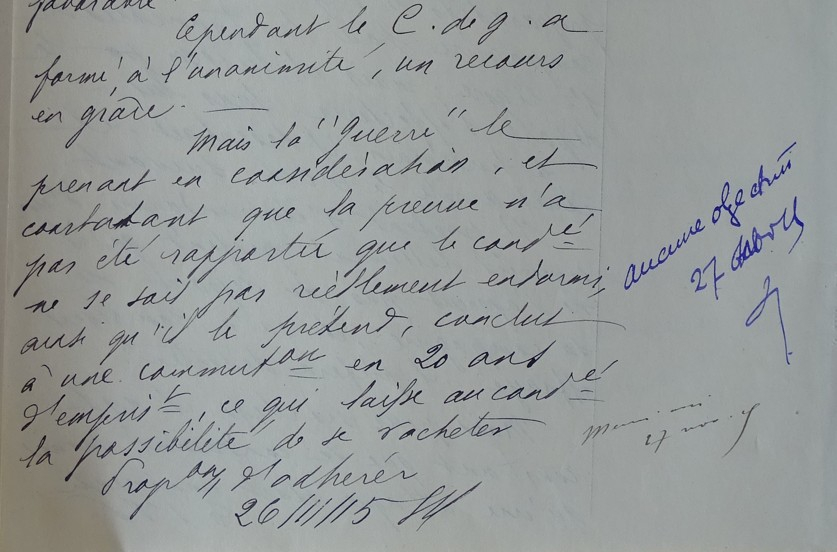 favorable.
Cependant le C. de g. a
formé, à l'unanimité, un recours
en grâce.
Mais la "Guerre" le
prenant en considération, et
constatant que la preuve n'a
pas été rapportée que le condé
ne se soit pas réellement endormi,
ainsi qu'il le prétend, conclut
à une commuton en 20 ans
d'emprist, ce qui laisse au condé
la possibilité de se racheter
Propons d'adhérer
26/11/15
aucune objection
27
27 nov.